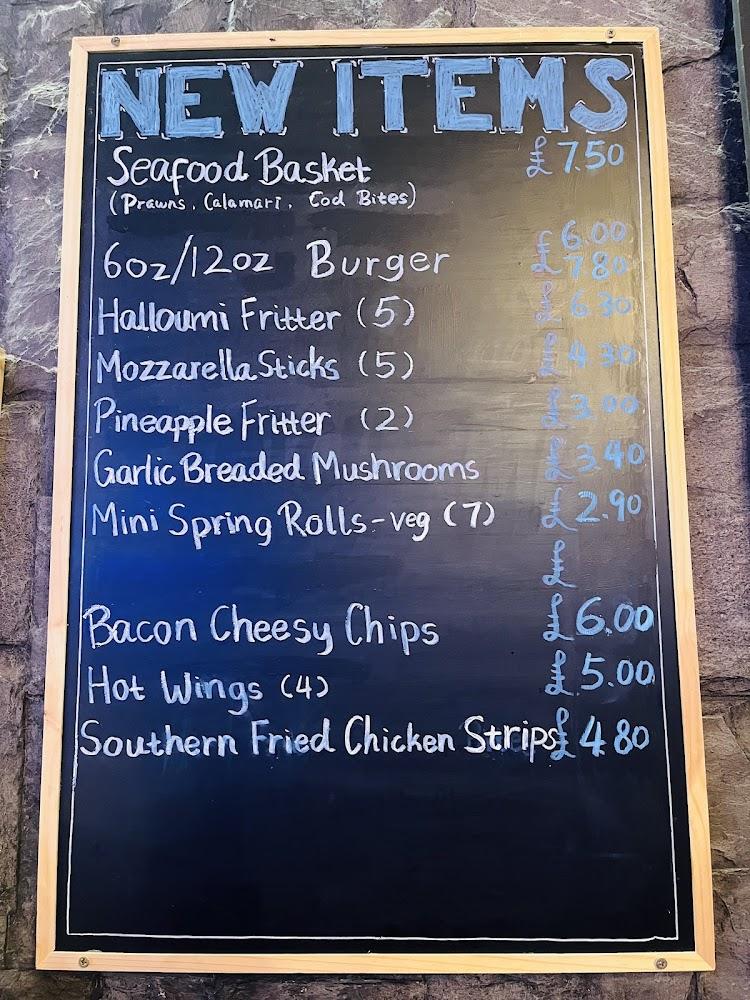 NEW ITEMS
Seafood Basket £ 7.50
(Prawns, Calamari, Cod Bites)
6oz/12oz Burger £ 6.00
£ 7.80
Halloumi Fritter (5) £ 6.30
Mozzarella Sticks (5) £ 4.30
Pineapple Fritter (2) £ 3.00
Garlic Breaded Mushrooms £ 3.40
Mini Spring Rolls-veg (7) £ 2.90
£
Bacon Cheesy Chips £ 6.00
Hot Wings (4) £ 5.00
Southern Fried Chicken Strips £ 4.80